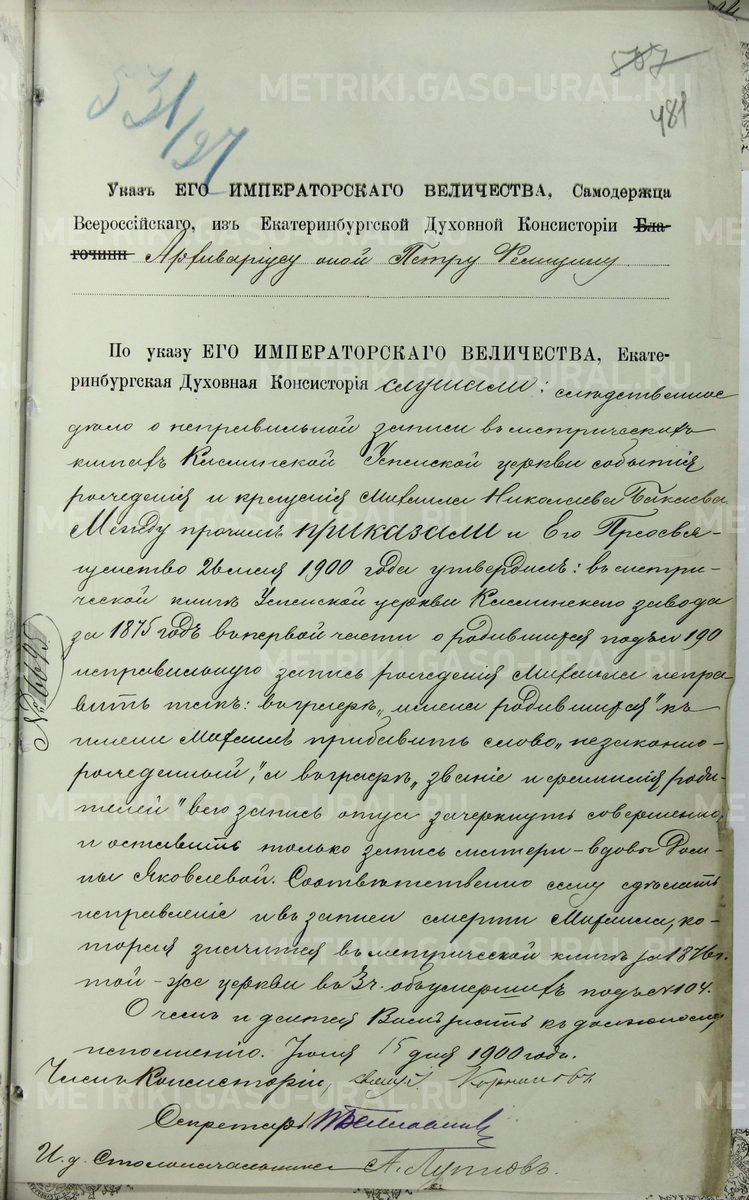 507
481
531/97
Указъ ЕГО ИМПЕРАТОРСКАГО ВЕЛИЧЕСТВА, Самодержца
Всероссійскаго, изъ Екатеринбургской Духовной Консисторіи Бла-
гочинн Архиваріусу оной Петру
По указу ЕГО ИМПЕРАТОРСКАГО ВЕЛИЧЕСТВА, Екате-
ринбургская Духовная Консисторія слушали: следственное
дѣло о неправильной записи въ метрическихъ
книгахъ Каслинской Успенской церкви событія
рожденія и крещенія Михаила Николаева Бакаева.
Между прочимъ приказали и Его Преосвя-
щенство 2 іюля 1900 года утвердилъ: въ метри-
ческой книгѣ Успенской церкви Каслинскаго завода
за 1875 годъ въ первой части о родившихся подъ № 190
неправильную запись рожденія Михаила испра-
вить такъ: въ графѣ „имена родившихся" къ
имени Михаилъ прибавить слово „незаконно-
рожденный", а въ графѣ „званіе и фамилія роди-
телей" всю запись отца зачеркнуть совершенно,
и оставить только запись матери - вдовы Дом-
ны Яковлевой. Соотвѣтственно сему сдѣлать
исправленіе и въ записи смерти Михаила, ко-
торая значится въ метрической книгѣ за 1876 г.
той-же церкви въ 3 ч. объ умершихъ подъ № 104.
О чемъ и дается Вамъ къ должному
исполненію. Іюля 15 дня 1900 года.
Членъ Консисторіи,
Секретарь
И. д. Столоначальника А. Лупповъ.
№ 6645
METRIKI.GASO-URAL.RU